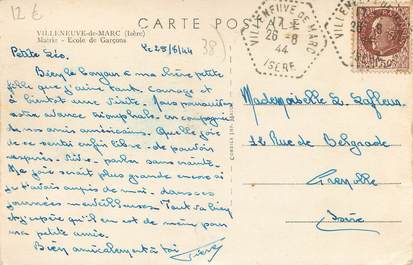 12 €
CARTE POSTALE
VILLENEUVE-de-MARC (Isère)
Mairie - Ecole de Garçons
38)
VILLENEUVE-DE-MARC
26-8
44
ISERE
VILLENEUVE-DE-MARC
Le 25/8/44
Petite Léo.
Bien le bonjour a ma chère petite
fille que j'aime tant. Courage et
à bientôt une visite. Nous poursuivons
notre avance triomphale en compagnie
de nos amis américains. Quelle joie
de se sentir enfin libre de pouvoir
respirer, vivre, parler sans crainte.
Ma joie serait plus grande encore si
je t'avais auprès de moi dans ces
journées merveilleuses. Tout va bien
et j'espère qu'il en est de même pour
ma petite amie.
Bien amicalement à toi
Mademoiselle L. Lafleur
12 Rue de Belgrade
Grenoble
Isère